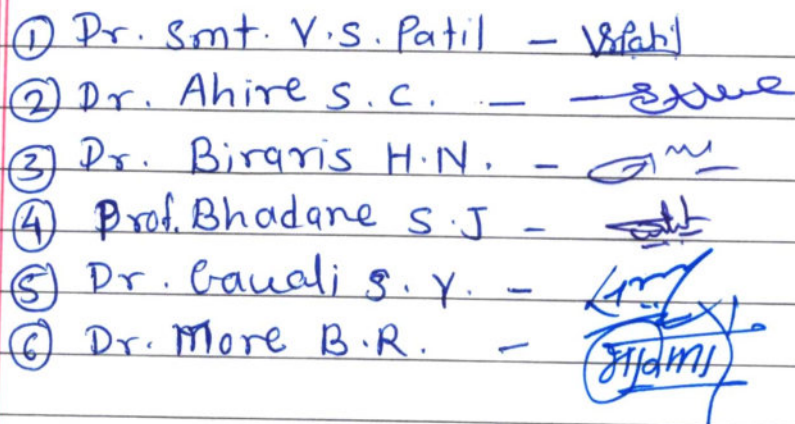 ① Dr. Smt. V.S. Patil - VSPatil
② Dr. Ahire S.C. -
③ Dr. Biraris H.N. -
④ Prof. Bhadane S.J -
⑤ Dr. Gavali S.Y. -
⑥ Dr. More B.R. -